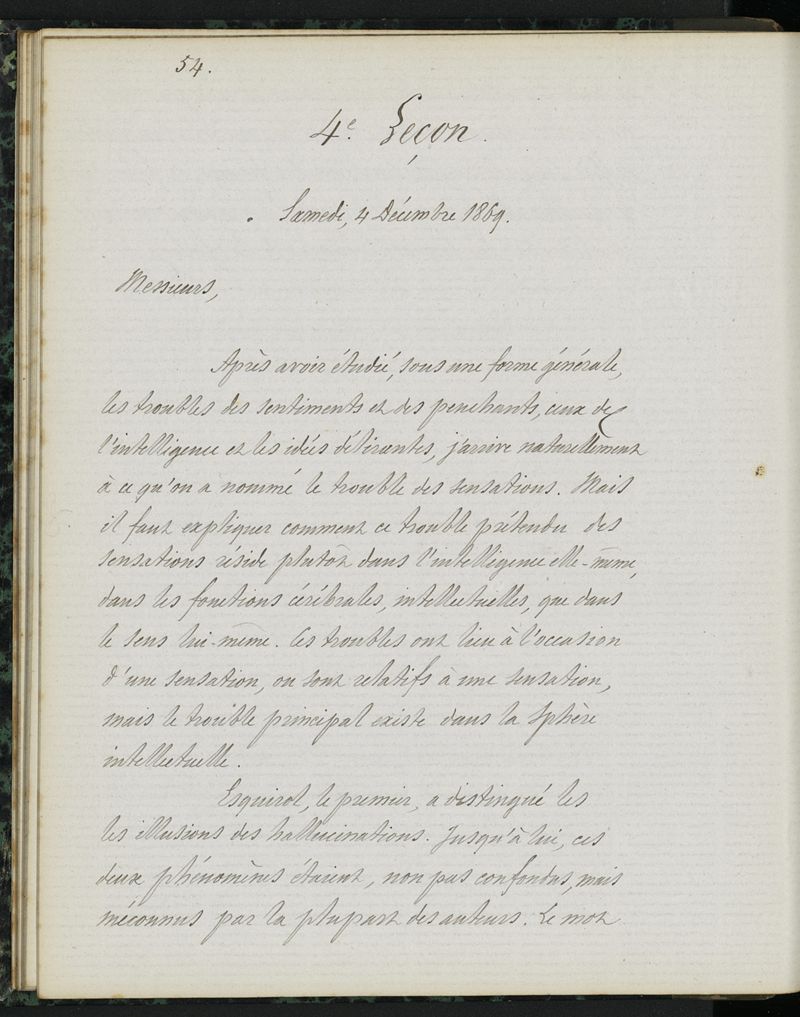 54.
4e. Leçon.
Samedi, 4 Décembre 1869.
Messieurs,
Après avoir étudié, sous une forme générale,
les troubles des sentiments et des penchants, ceux de
l'intelligence et les idées délirantes, j'arrive naturellement
à ce qu'on a nommé le trouble des sensations. Mais
il faut expliquer comment ce trouble prétendu des
sensations réside plutôt dans l'intelligence elle-même,
dans les fonctions cérébrales, intellectuelles, que dans
le sens lui-même. Ces troubles ont lieu à l'occasion
d'une sensation, ou sont relatifs à une sensation,
mais le trouble principal existe dans la sphère
intellectuelle.
Esquirol, le premier, a distingué les
les illusions des hallucinations. Jusqu'à lui, ces
deux phénomènes étaient, non pas confondus, mais
méconnus par la plupart des auteurs. Le mot